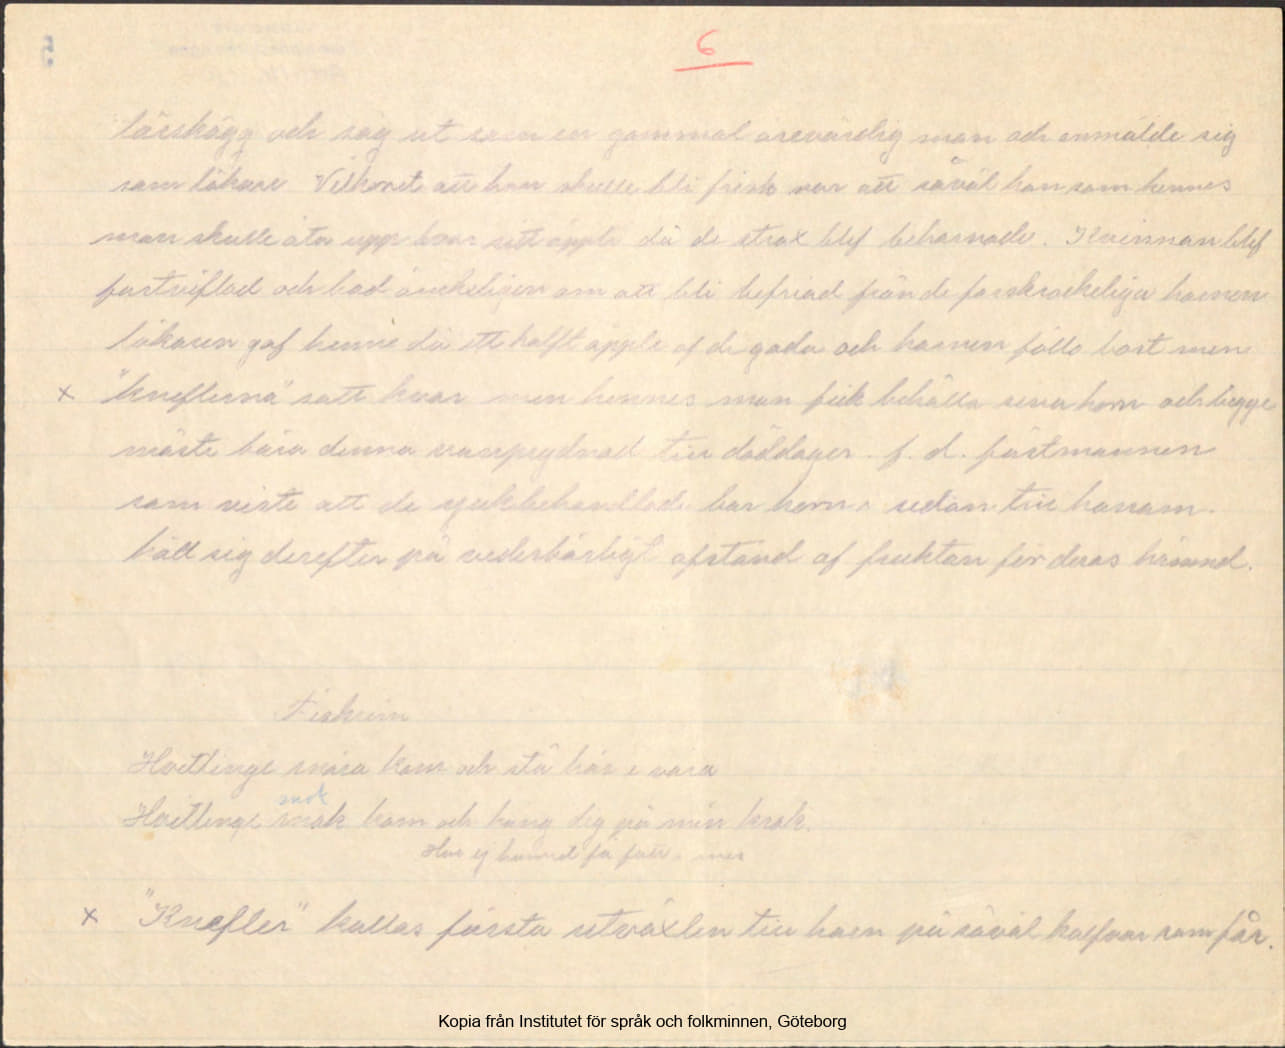 6
lösskägg och såg ut som en gammal ärevördig man och anmälde sig
som läkare Vilkoret att hon skulle bli frisk var att såväl hon som hennes
man skulle äta upp hvar sitt äpple då de strax blef behornade. Kvinnan blef
förtviflad och bad änkeligen om att bli befriad från de förskräckeliga hornen
läkaren gaf henne då ett halft äpple af de goda och hornen föllo bort men
x "knefflerna" satt kvar men hennes man fick behålla sina horn och begge
måste bära denna vanprydnad till döddager. f. d. fästmannen
som viste att de sjukbehandlade bar horn, sedan till honom.
höll sig derefter på vederbörligt afstånd af fruktan för deras hämnd.
Fiskrim
Hvitlinge snara kom och stå här i vara
snok
Hvitlinge snok kom och häng dig på min krok.
Har ej kunnat få fatt i mer
x "Knefler" kallas första utväxten till horn på såväl kalfvar som får.
Kopia från Institutet för språk och folkminnen, Göteborg